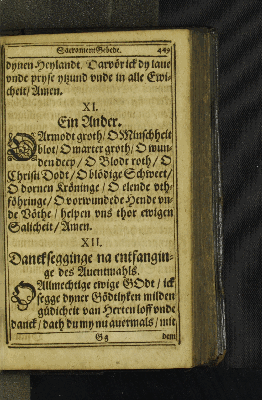 Sacrament Gebede. 449
dynen Heylandt. Darvör ick dy laue
vnde pryse ytzund vnde in alle Ewi-
cheit/ Amen.
XI.
Ein Ander.
O Armodt groth/ O Minschheit
blot/ O marter groth/ O wun-
den deep/ O Blodt roth/ O
Christi Dodt/ O blödige Schweet/
O dornen Kröninge/ O elende vth-
föhringe/ O vorwundede Hende vn-
de Vöthe/ helpen vns thor ewigen
Salicheit/ Amen.
XII.
Dancksegginge na entfangin-
ge des Auentmahls.
O Allmechtige ewige GOdt/ ick
segge dyner Gödtlyken milden
güdicheit van Herten loff vnde
danck/ dath du my nu auermals/ mit
Gg dem